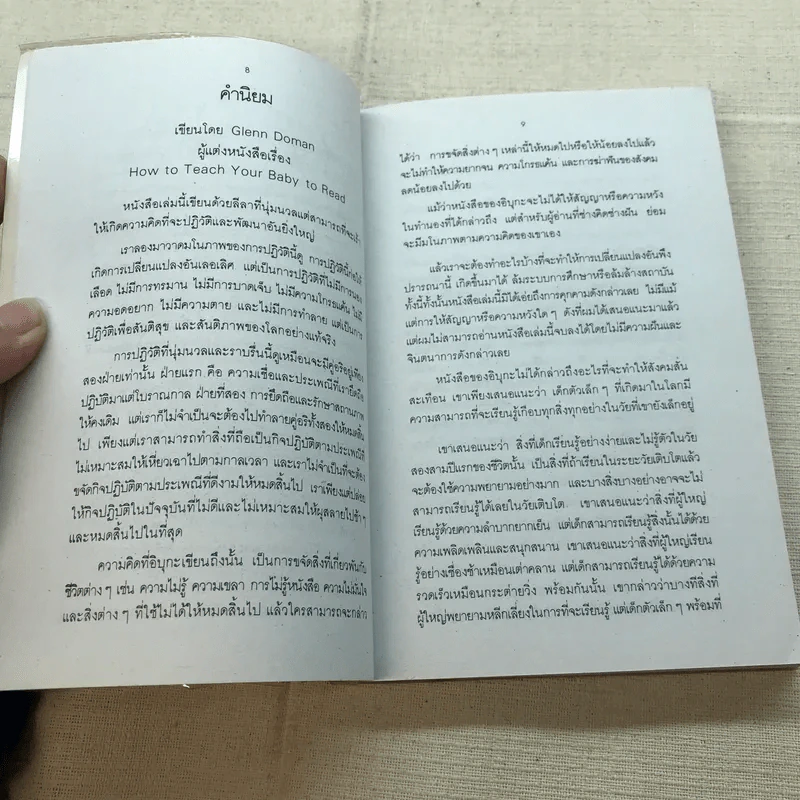 8
คำนิยม
เขียนโดย Glenn Doman
ผู้แต่งหนังสือเรื่อง
How to Teach Your Baby to Read
หนังสือเล่มนี้เขียนด้วยลีลาที่นุ่มนวลแต่สามารถที่จะเร้า
ให้เกิดความคิดที่จะปฏิวัติและพัฒนาอันยิ่งใหญ่
เราลองมาวาดมโนภาพของการปฏิวัตินี้ดู การปฏิวัตินี้ก่อให้
เกิดการเปลี่ยนแปลงอันเลอเลิศ แต่เป็นการปฏิวัติที่ไม่มีการนอง
เลือด ไม่มีการทรมาน ไม่มีการบาดเจ็บ ไม่มีความโกรธแค้น ไม่มี
ความอดอยาก ไม่มีความตาย และไม่มีการทำลาย แต่เป็นการ
ปฏิวัติเพื่อสันติสุข และสันติภาพของโลกอย่างแท้จริง
การปฏิวัติที่นุ่มนวลและราบรื่นนี้ดูเหมือนจะมีคู่อริอยู่เพียง
สองฝ่ายเท่านั้น ฝ่ายแรก คือ ความเชื่อและประเพณีที่ยึดถือ
ปฏิบัติมาแต่โบราณกาล ฝ่ายที่สอง การยึดถือและรักษาสถานภาพ
ให้คงเดิม แต่เราก็ไม่จำเป็นจะต้องไปทำลายคู่อริทั้งสองให้หมดสิ้น
ไป เพียงแต่เราสามารถทำสิ่งที่ถือเป็นกิจปฏิบัติตามประเพณีที่
ไม่เหมาะสมให้เหี่ยวเฉาไปตามกาลเวลา และเราไม่จำเป็นที่จะต้อง
ขจัดกิจปฏิบัติตามประเพณีที่ดีงามให้หมดสิ้นไป เราเพียงแต่ปล่อย
ให้กิจปฏิบัติในปัจจุบันที่ไม่ดีและไม่เหมาะสมให้ผุสลายไปช้า ๆ
และหมดสิ้นไปในที่สุด
ความคิดที่อิบุกะเขียนถึงนั้น เป็นการขจัดสิ่งที่เกี่ยวพันกับ
ชีวิตต่าง ๆ เช่น ความไม่รู้ ความเขลา การไม่รู้หนังสือ ความไม่มั่นใจ
และสิ่งต่าง ๆ ที่ใช้ไม่ได้ให้หมดสิ้นไป แล้วใครสามารถจะกล่าว
9
ได้ว่า การขจัดสิ่งต่าง ๆ เหล่านี้ให้หมดไปหรือให้น้อยลงไปแล้ว
จะไม่ทำให้ความยากจน ความโกรธแค้น และการฆ่าฟันของสังคม
ลดน้อยลงไปด้วย
แม้ว่าหนังสือของอิบุกะจะไม่ได้ให้สัญญาหรือความหวัง
ในทำนองที่ได้กล่าวถึง แต่สำหรับผู้อ่านที่ช่างคิดช่างฝัน ย่อม
จะมีมโนภาพตามความคิดของเขาเอง
แล้วเราจะต้องทำอะไรบ้างที่จะทำให้การเปลี่ยนแปลงอันพึง
ปรารถนานี้ เกิดขึ้นมาได้ ล้มระบบการศึกษาหรือล้มล้างสถาบัน
ทั้งนี้ทั้งนั้นหนังสือเล่มนี้มิได้เอ่ยถึงการคุกคามดังกล่าวเลย ไม่มีแม้
แต่การให้สัญญาหรือความหวังใด ๆ ดังที่ผมได้เสนอแนะมาแล้ว
แต่ผมไม่สามารถอ่านหนังสือเล่มนี้จบลงได้โดยไม่มีความฝันและ
จินตนาการดังกล่าวเลย
หนังสือของอิบุกะไม่ได้กล่าวถึงอะไรที่จะทำให้สังคมสั่น
สะเทือน เขาเพียงเสนอแนะว่า เด็กตัวเล็ก ๆ ที่เกิดมาในโลกมี
ความสามารถที่จะเรียนรู้เกือบทุกสิ่งทุกอย่างในวัยที่เขายังเล็กอยู่
เขาเสนอแนะว่า สิ่งที่เด็กเรียนรู้อย่างง่ายและไม่รู้ตัวในวัย
สองสามปีแรกของชีวิตนั้น เป็นสิ่งที่ถ้าเรียนในระยะวัยเติบโตแล้ว
จะต้องใช้ความพยายามอย่างมาก และบางสิ่งบางอย่างอาจจะไม่
สามารถเรียนรู้ได้เลยในวัยเติบโต. เขาเสนอแนะว่าสิ่งที่ผู้ใหญ่
เรียนรู้ด้วยความลำบากยากเย็น แต่เด็กสามารถเรียนรู้สิ่งนั้นได้ด้วย
ความเพลิดเพลินและสนุกสนาน เขาเสนอแนะว่าสิ่งที่ผู้ใหญ่เรียน
รู้อย่างเชื่องช้าเหมือนเต่าคลาน แต่เด็กสามารถเรียนรู้ได้ด้วยความ
รวดเร็วเหมือนกระต่ายวิ่ง พร้อมกันนั้น เขากล่าวว่าบางทีสิ่งที่
ผู้ใหญ่พยายามหลีกเลี่ยงในการที่จะเรียนรู้ แต่เด็กตัวเล็ก ๆ พร้อมที่